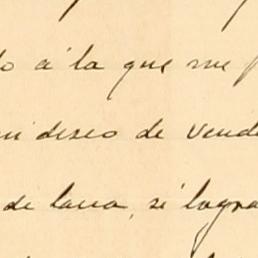 o á la que me
mi deseo de vende
de lana, si logra